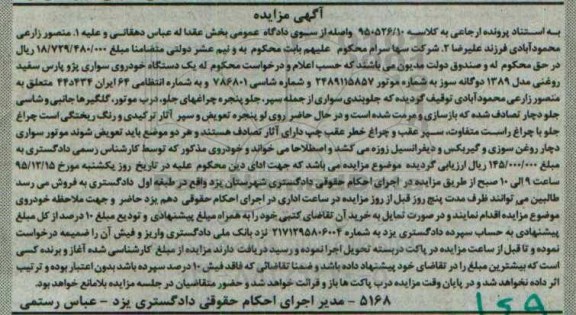 آگهی مزایده
به استناد پرونده ارجاعی به کلاسه ۹۵۰۵۲۶/۱۰ واصله از سوی دادگاه عمومی بخش عقدا له عباس دهقانی و علیه ۱. منصور زارعی
محمودآبادی فرزند علیرضا ۲. شرکت سها سرام محکوم علیهم بابت محکوم به و نیم عشر دولتی متضامنا مبلغ ۱۸/۷۲۹/۴۸۰/۰۰۰ ریال
در حق محکوم له و صندوق دولت مدیون می باشند که حسب اعلام و درخواست محکوم له یک دستگاه خودروی سواری پژو پارس سفید
روغنی مدل ۱۳۸۹ دوگانه سوز به شماره موتور ۲۴۸۹۱۱۵۸۵۷ و شماره شاسی ۷۸۶۸۰۱ و به شماره انتظامی ۶۴ ایران ۴۴د۴۳۴ متعلق به
منصور زارعی محمودآبادی توقیف گردیده که جلوبندی سواری از جمله سپر، جلو پنجره چراغهای جلو، درب موتور، گلگیرها جانبی و شاسی
جلو دچار تصادف شده که بازسازی و مرمت شده است و در حال حاضر روی لو پنجره تعویض و سپر آثار ترکیدی و رنگ ریختگی است چراغ
جلو با چراغ راست متفاوت، سپر عقب و چراغ خطر عقب چپ دارای آثار تصادف هستند و هر دو موضع باید تعویض شوند موتور سواری
دچار روغن سوزی و گیربکس و دیفرانسیل زوزه می کشد و اصطلاحا می خواند و خودروی مذکور که توسط کارشناس رسمی دادگستری به
مبلغ ۱۴۵/۰۰۰/۰۰۰ ریال ارزیابی گردیده موضوع مزایده می باشد که جهت ادای دین محکوم علیه در تاریخ روز یکشنبه مورخ ۹۵/۱۲/۱۵
ساعت ۹ الی ۱۰ صبح از طریق مزایده در اجرای احکام حقوقی دادگستری شهرستان یزد واقع در طبقه اول دادگستری به فروش می رسد
طالبین می توانند ظرف مدت پنج روز قبل از روز مزایده در ساعت اداری در اجرای احکام حقوقی دهم یزد حاضر و جهت ملاحظه خودروی
موضوع مزایده اقدام نمایند و در صورت تمایل به خرید آن تقاضای کتبی خود را به همراه مبلغ پیشنهادی و تودیع مبلغ ۱۰ درصد از کل مبلغ
پیشنهادی به حساب سپرده دادگستری یزد به شماره ۲۱۷۱۲۹۵۸۰۶۰۰۴ نزد بانک ملی دادگستری واریز و فیش آن را ضمیمه درخواست
نموده و تا قبل از ساعت مزایده در پاکت دربسته تحویل اجرا نموده و رسید دریافت دارند مزایده از مبلغ کارشناسی شده آغاز و برنده کسی
است که بیشترین مبلغ را در تقاضای خود پیشنهاد داده باشد و ضمنا تقاضائی که فاقد فیش ۱۰ درصد سپرده باشد بدون اعتبار بوده و ترتیب
اثر داده نخواهد شد و در پایان وقت مزایده درب پاکت ها باز و قرائت خواهد شد و حضور متقاضیان در جلسه مزایده بلامانع خواهد بود.
۵۱۶۸ - مدیر اجرای احکام حقوقی دادگستری یزد - عباس رستمی